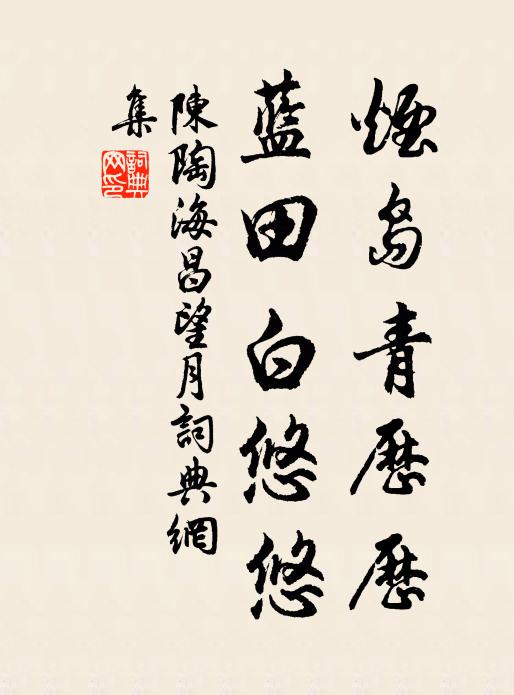 煙島青歷歷
藍田白悠悠
陳陶海昌望月詞典網
集
詞典
网印